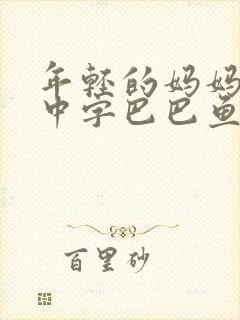 年轻的妈妈
中字巴巴鱼
百里砂